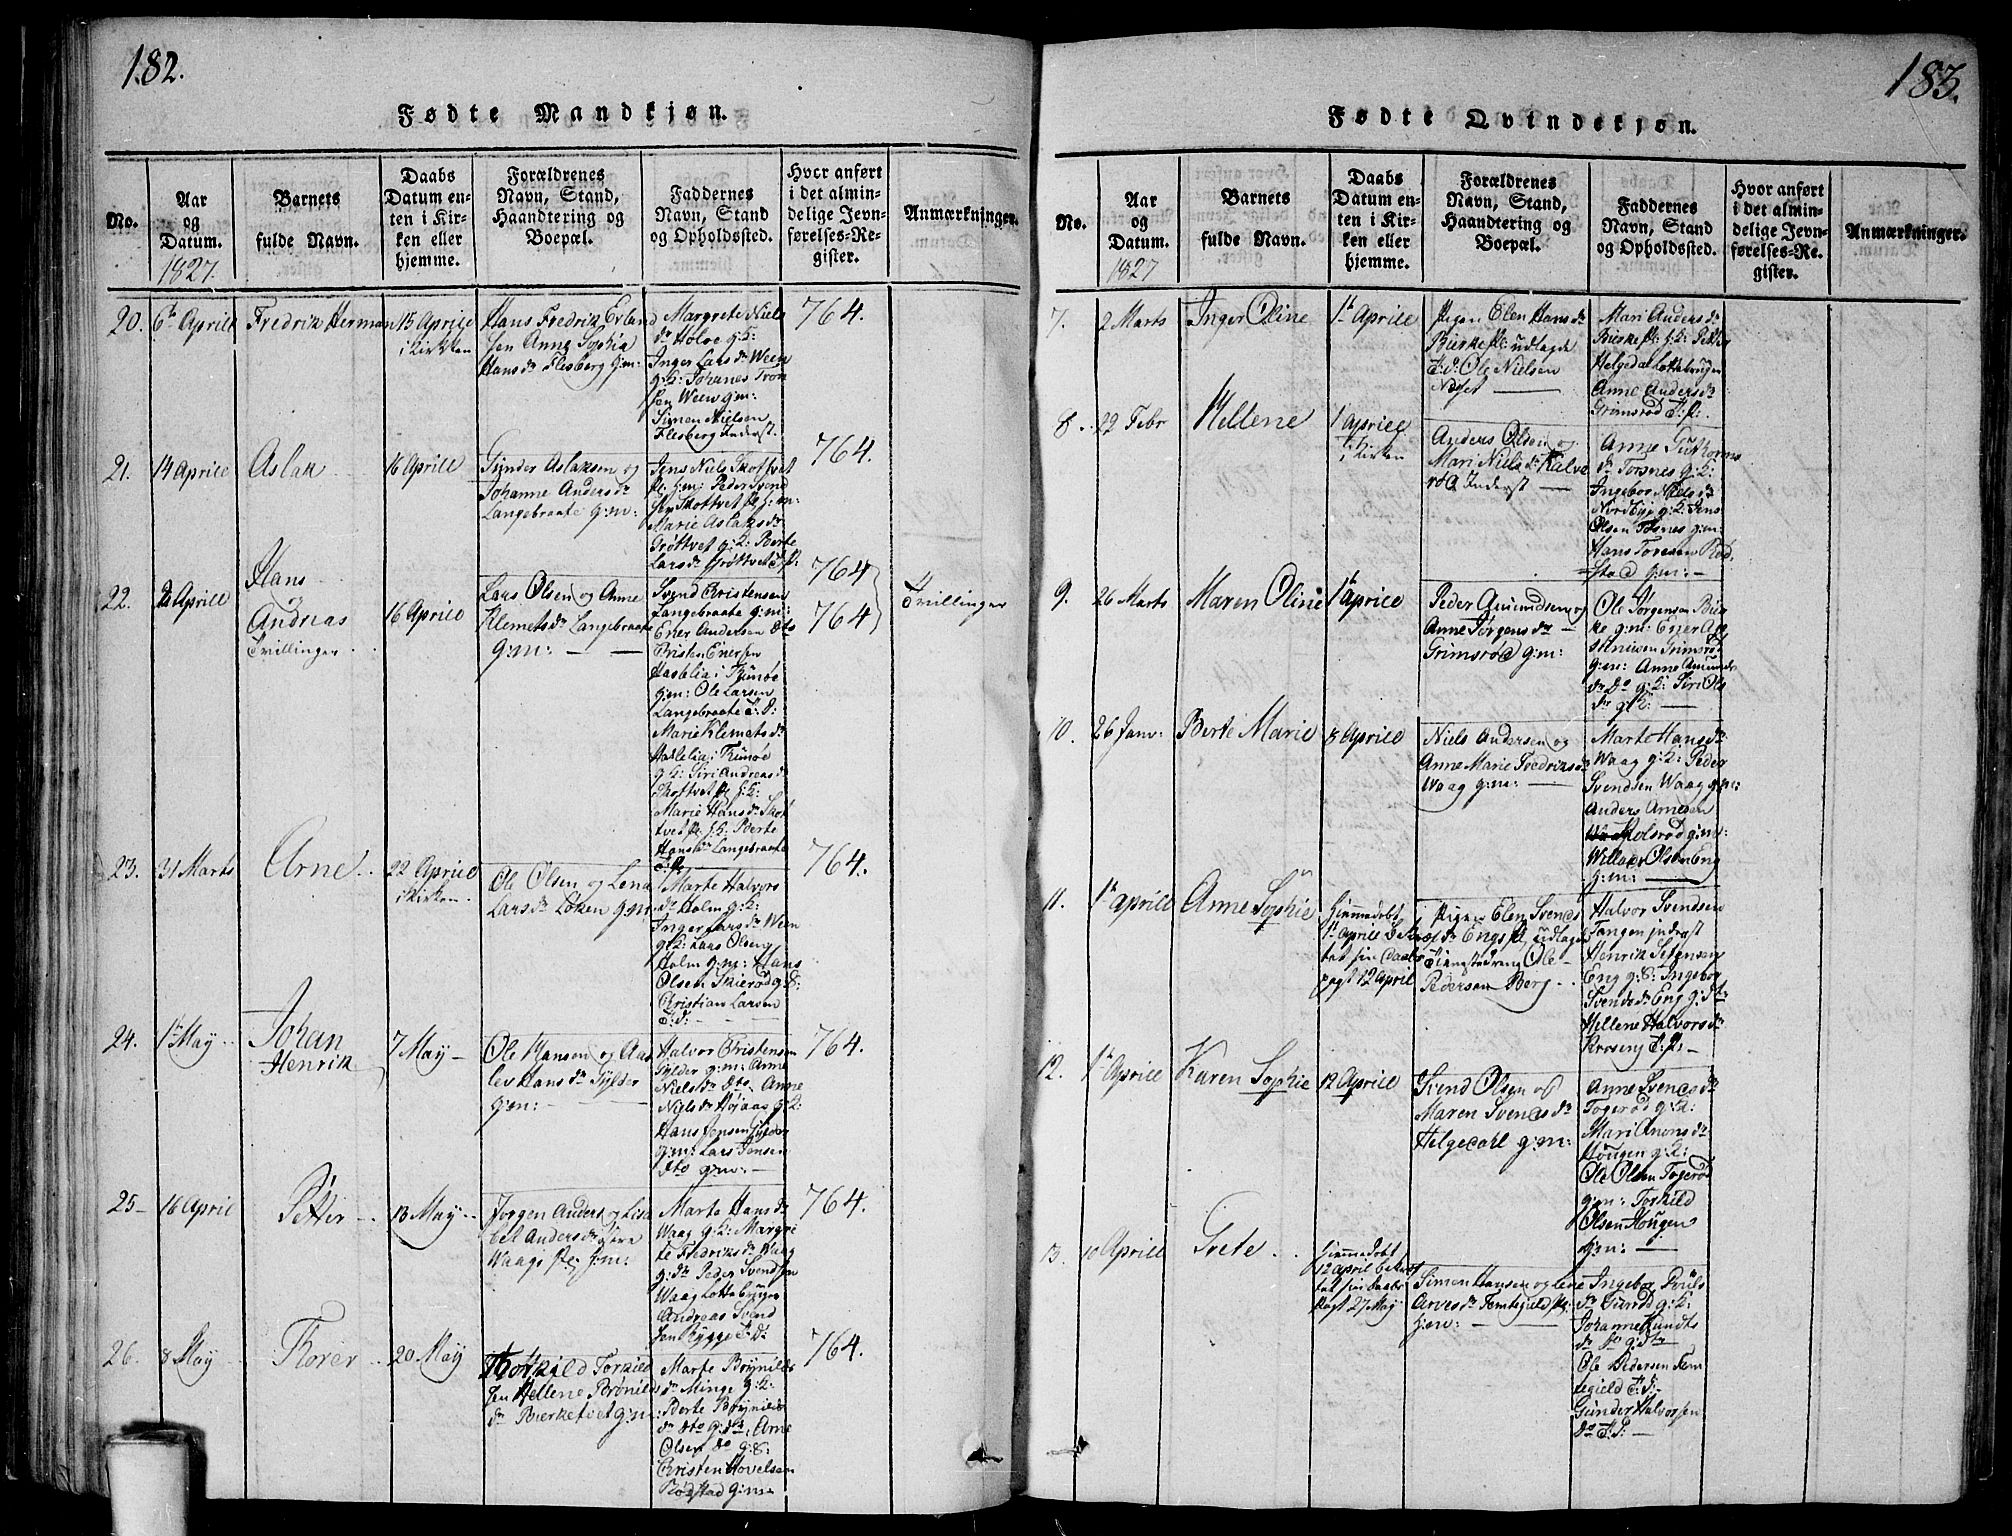 182.
Fødte Mandkjøn.
No.
Aar
og
Datum.
1827.
Barnets
fulde Navn.
Daabs
Datum en-
ten i Kir-
ken eller
hjemme.
Forældrenes
Navn, Stand,
Haandtering og
Boepæl.
Faddernes
Navn, Stand
og Opholdssted.
Hvor anført
i det almin-
delige Jevn-
førelses-Re-
gister.
Anmærkninger.
20.
6te Aprill
Fredrik Herman
15 Aprill
i Kirken
Hans Fredrik Erland
sen Anne Sophia
Hans dr Flesberg g:m:
Margrete Niels
dr Holve g:K:
Inger Lars dr Ween
g:K: Johanes Tron
sen Ween g:m:
Simen Nielsen
Flesberg Inderst.
764.
21.
14 Aprill
Aslak
16 Aprill
Gunder Aslaksen og
Johanne Anders dr
Langebraate g:m:
Jens Niels Skottvet
pl: g:m: Peder Svend
sen Skottvet pl g:m:
Marie Aslaks dr
Grøttvet g:K: Berte
Lars dr Grøttvet I:P:
764.
22.
Aprill
Hans
og
Andreas
Tvillinger
16 Aprill
Lars Olsen og Anne
Klemets dr Langebraate
g:m:
Svend Cristensen
Langebraate g:m:
Ener Andersen dto
Cristen Enersen
Haslelia i Tunøe
g:m: Ole Larsen
Langebraate I:D:
Marie Klemets dr
Haslelia i Tunøe
g:K: Siri Andreas dr
Skottvet pl g:K:
Marie Hans dr Skot
tvet pl: g:K: Berte
Hans dr Langebraate
I:P:
764
764
Tvillinger
23.
31 Marts
Arne
22 Aprill
i Kirken
Ole Olsen og Lena
Lars dr Løken g:m:
Marte Halvors
dr Holm g:K:
Inger Lars dr Ween
g:K: Lars Olsen
Holm g:m: Hans
Olsen Skierød g:K:
Christian Larsen
I:d:
764.
24.
1te May
Johan
Henrik
7 May
Ole Hansen og Aas
lev Hans dr Gylder
g:m:
Halvor Cristensen
Gylder g:m: Anne
Niels dr dto Anne
Niels dr Højaas g:K:
Hans Jensen Gylder
g:m: Lars Jensen
dto g:m:
764.
25
16 April
Petter
13 May
Jørgen Anders og Lisa
bet Anders dr Øvre
Waags pl: g:m:
Marte Hans dr
Waag g:K: Margre
te Fredriks dr Waag
g:dtr Peder Svendsen
Waag Lottebruger
Andreas Svend
sen Rygge I:d:
764.
26.
8 May
Thorer
20 May
Thorkild Torkild
sen Hellene Brønilds
dr Bierketvet g:m:
Marte Brynilds
dr Minge g:K:
Berte Brynilds
dr dto g:dtr: Arne
Olsen do g:S:
Cristen Hovelsen
Rødstad g:m
764.
183.
Fødte Qvindekjøn.
No.
Aar
og
Datum.
1827
Barnets
fulde Navn.
Daabs
Datum en-
ten i Kir-
ken eller
hjemme.
Forældrenes
Navn, Stand,
Haandtering og
Boepæl.
Faddernes
Navn, Stand
og Opholdssted.
Hvor anført
i det almin-
delige Jevn-
førelses-Re-
gister.
Anmærkninger.
7.
2 Marts
Inger Oline
1te Aprill
Pigen Elen Hans dr
Bierke pl: udlagde
I:d: Ole Nielsen
Mari Anders dr
Bierke pl: g:K: Petter
Helgedal Lottebruger
Anne Anders dr
Grimsrød I:P:
8.
22 Febr
Hellene
1 Aprill
i Kirken
Anders Olsen og
Mari Niels dr Kalve
rød Inderst
Anne Guttorms
dr Torsnes g:K:
Ingebor Niels dr
Nordbye g:K: Jens
Olsen Torsnes g:m:
Hans Toresen Rød
stad g:m:
9.
26 Marts
Maren Oline
1te Aprill
Peder Amundsen og
Anne Jørgens dr
Grimsrød g:m:
Ole Jørgensen Bier
ke g:m: Ener An
Grimsrød
g:m: Anne Amunds
dr Do g:K: Siri Ols
dr g:K:
10.
26 Janv:
Berte Marie
8 Aprill
Niels Andersen og
Anne Marie Fredriks dr
Waag g:m:
Marte Hans dr
Waag g:K: Peder
Svendsen Waag g:m:
Anders Arnesen
Kolsrød g:m:
Willads Olsen Eng
g:m:
11.
1te aprill
Anne Sophie
Hjemmedøbt
1te Aprill
12 April
Pigen Elen Svends
dr Engs pl. udlagde
Tienestedreng Ole
Pedersen Berg
Halvor Svendsen
Tangen inderst
Henrik Petersen
Eng g:S: Ingebog
Svends dr Eng g:dtr
Hellene Halvors dr
Kroseng I:P:
12.
1te Aprill
Karen Sophie
12 Aprill
Svend Olsen og
Maren Svends dr
Helgedahl g:m:
Anne Svends dr
Togerød g:K:
Mari Anons dr
Hougen g:K:
Ole Olsen Togerød
g:m: Torkild
Olsen Hougen
g:m:
13.
10 Aprill
Grete
Hjemmedøbt
12 april bekræf
tet sin Daabs
Pagt 27 May
Simon Hansen og Lene
Arves dr Femtegield pl:
g:m:
Ingebor Pouls
dr Sunrød g:K:
Johanne Gundts
dr do g:dtr
Ole Pedersen Fem
tegield I:d:
Gunder Halvorsen
do I:P: